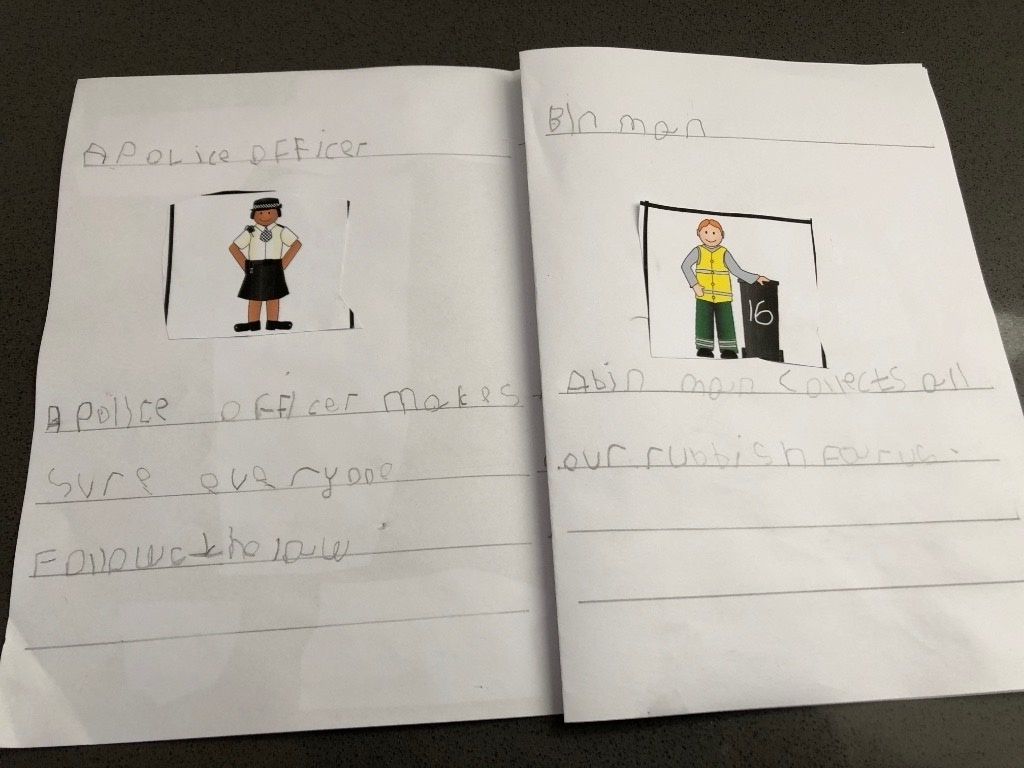 A Police officer
A Police officer makes
sure everyone
Follows the law
Bin man
16
A bin man collects all
our rubbish for us.